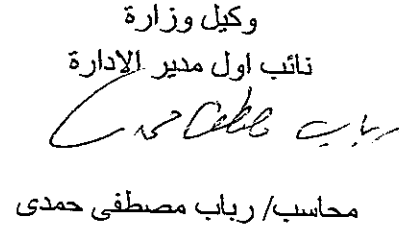 وكيل وزارة
نائب اول مدير الادارة
رباب مصطفى حمدى
محاسب/ رباب مصطفى حمدى